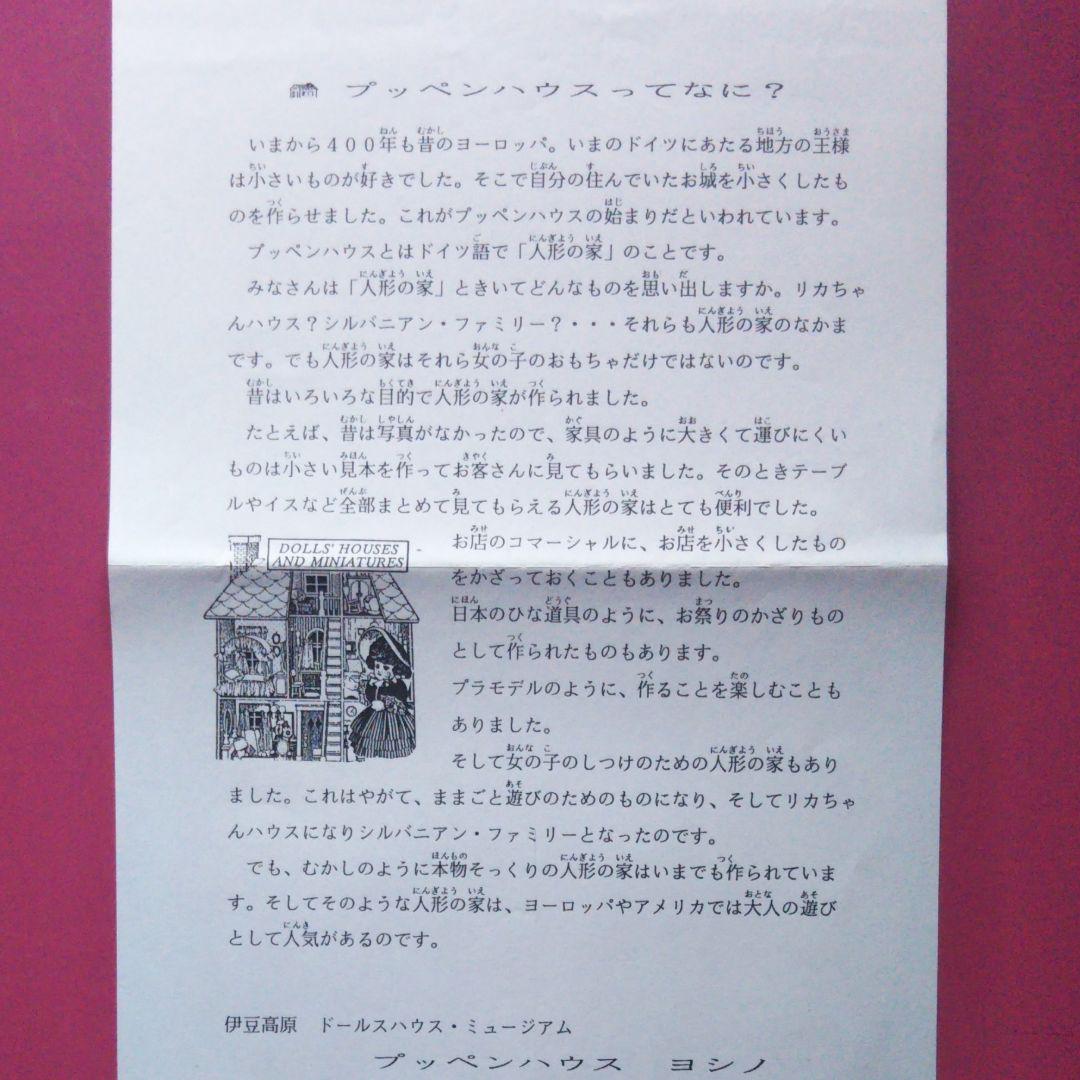 プッペンハウスってなに？
いまから４００年も昔のヨーロッパ。いまのドイツにあたる地方の王様
は小さいものが好きでした。そこで自分の住んでいたお城を小さくしたも
のを作らせました。これがプッペンハウスの始まりだといわれています。
プッペンハウスとはドイツ語で「人形の家」のことです。
みなさんは「人形の家」ときいてどんなものを思い出しますか。リカちゃ
んハウス？シルバニアン・ファミリー？・・・それらも人形の家のなかま
です。でも人形の家はそれら女の子のおもちゃだけではないのです。
昔はいろいろな目的で人形の家が作られました。
たとえば、昔は写真がなかったので、家具のように大きくて運びにくい
ものは小さい見本を作ってお客さんに見てもらいました。そのときテーブ
ルやイスなど全部まとめて見てもらえる人形の家はとても便利でした。
お店のコマーシャルに、お店を小さくしたもの
をかざっておくこともありました。
日本のひな道具のように、お祭りのかざりもの
として作られたものもあります。
プラモデルのように、作ることを楽しむことも
ありました。
そして女の子のしつけのための人形の家もあり
ました。これはやがて、ままごと遊びのためのものになり、そしてリカちゃ
んハウスになりシルバニアン・ファミリーとなったのです。
でも、むかしのように本物そっくりの人形の家はいまでも作られていま
す。そしてそのような人形の家は、ヨーロッパやアメリカでは大人の遊び
として人気があるのです。
DOLLS' HOUSES
AND MINIATURES
伊豆高原　ドールスハウス・ミュージアム
プッペンハウス　ヨシノ